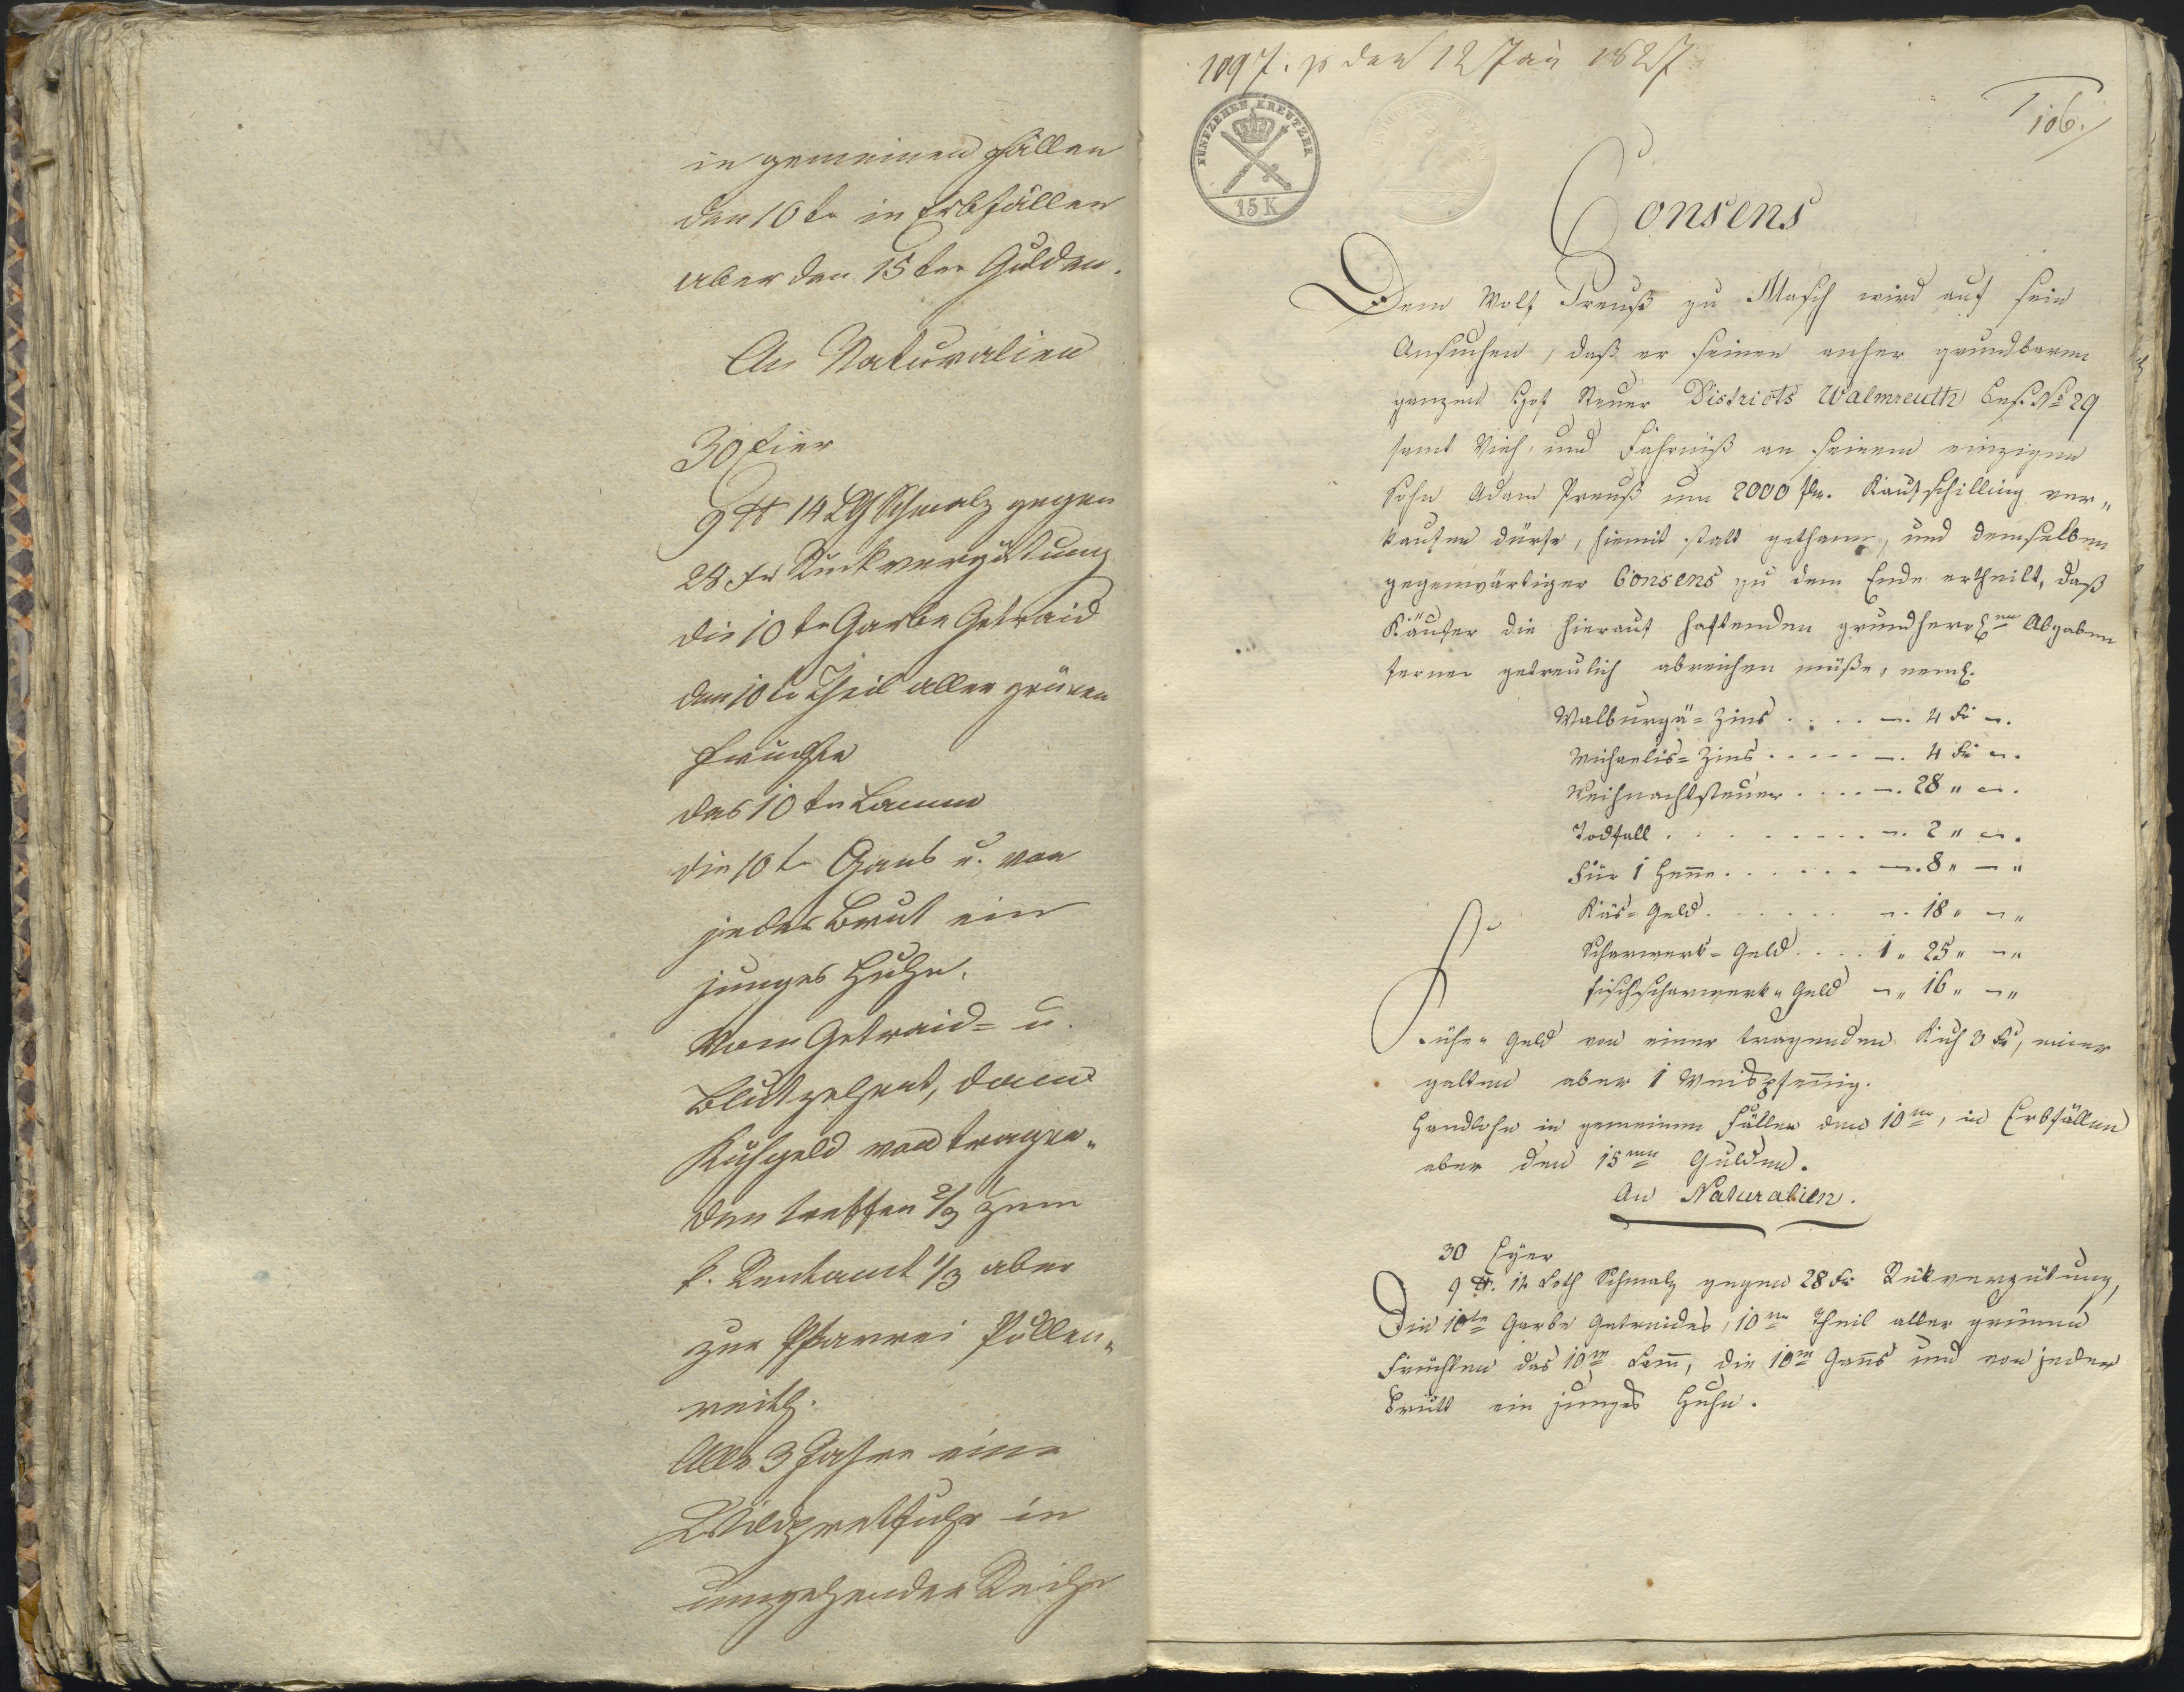 in gemeinen Fällen
den 10te in Erbfällen
aber den 15ten Gulden.
An Naturalien
30 Eier
9 ℔ 14 Lth Schmalz gegen
28 xr Rückvergüttung
die 10te Garbe Getraid
den 10te Theil aller grünen
Früchte
das 10te Lamm
die 10te Gans u. von
jeder Brut ein
junges Huhn.
Vom Getraid= u.
Blutzehent, dann
Kuhgeld von tragen„
den treffen 2/3 zum
k. Rentamt 1/3 aber
zur Pfarrei Püllen„
reith.
Alle 3 Jahre eine
Wildpretfuhr in
umgehender Reihe
1097. ps den 12 Jan 1827
106.
FÜNFZEHEN KREUTZER
15 K
Consens
Dem Wolf Preuß zu Masch wird auf sein
Ansuchen, daß er seinen anher grundbaren
ganzen Hof Steuer Districts Walmreuth Bes. No 29
samt Vieh, und Fahrniß an seinem einzigen
Sohn Adam Preuß um 2000 fl. Kaufschilling ver„
kaufen dürfe, hiemit statt gethann, und demselben
gegenwärtiger Consens zu dem Ende ertheilt, daß
Käufer die hierauf haftenden grundherrlen Abgaben
ferner getreulich abreichen müße, neml.
Walburgä=Zins . . . . —. 4 Kr —.
Michaelis=Zins . . . . . —. 4 Kr —.
Weihnachtsteuer . . . . —. 28 „ —.
Todfall . . . . . . . . —. 2 „ —.
Für 1 Henne . . . . . . —. 8 „ — „
Käs=Geld . . . . . . —. 18 „ — „
Scharwerk=Geld . . . . 1 „ 25 „ — „
Fischscharwerk=Geld — „ 16 „ — „
Kühe=Geld von einer tragenden Kuh 3 Kr, einer
galten aber 1 Weispfennig.
Handlohn in gemeinen Fällen den 10ten, in Erbfällen
aber den 15ten Gulden.
An Naturalien.
30 Eyer
9 ℔. 14 Loth Schmalz gegen 28 Kr Rükvergütung,
Die 10te Garbe Getreides, 10te Theil aller grünen
Früchten das 10te Lam̅, die 10te Gans und von jeder
Brütt ein junges Huhn.